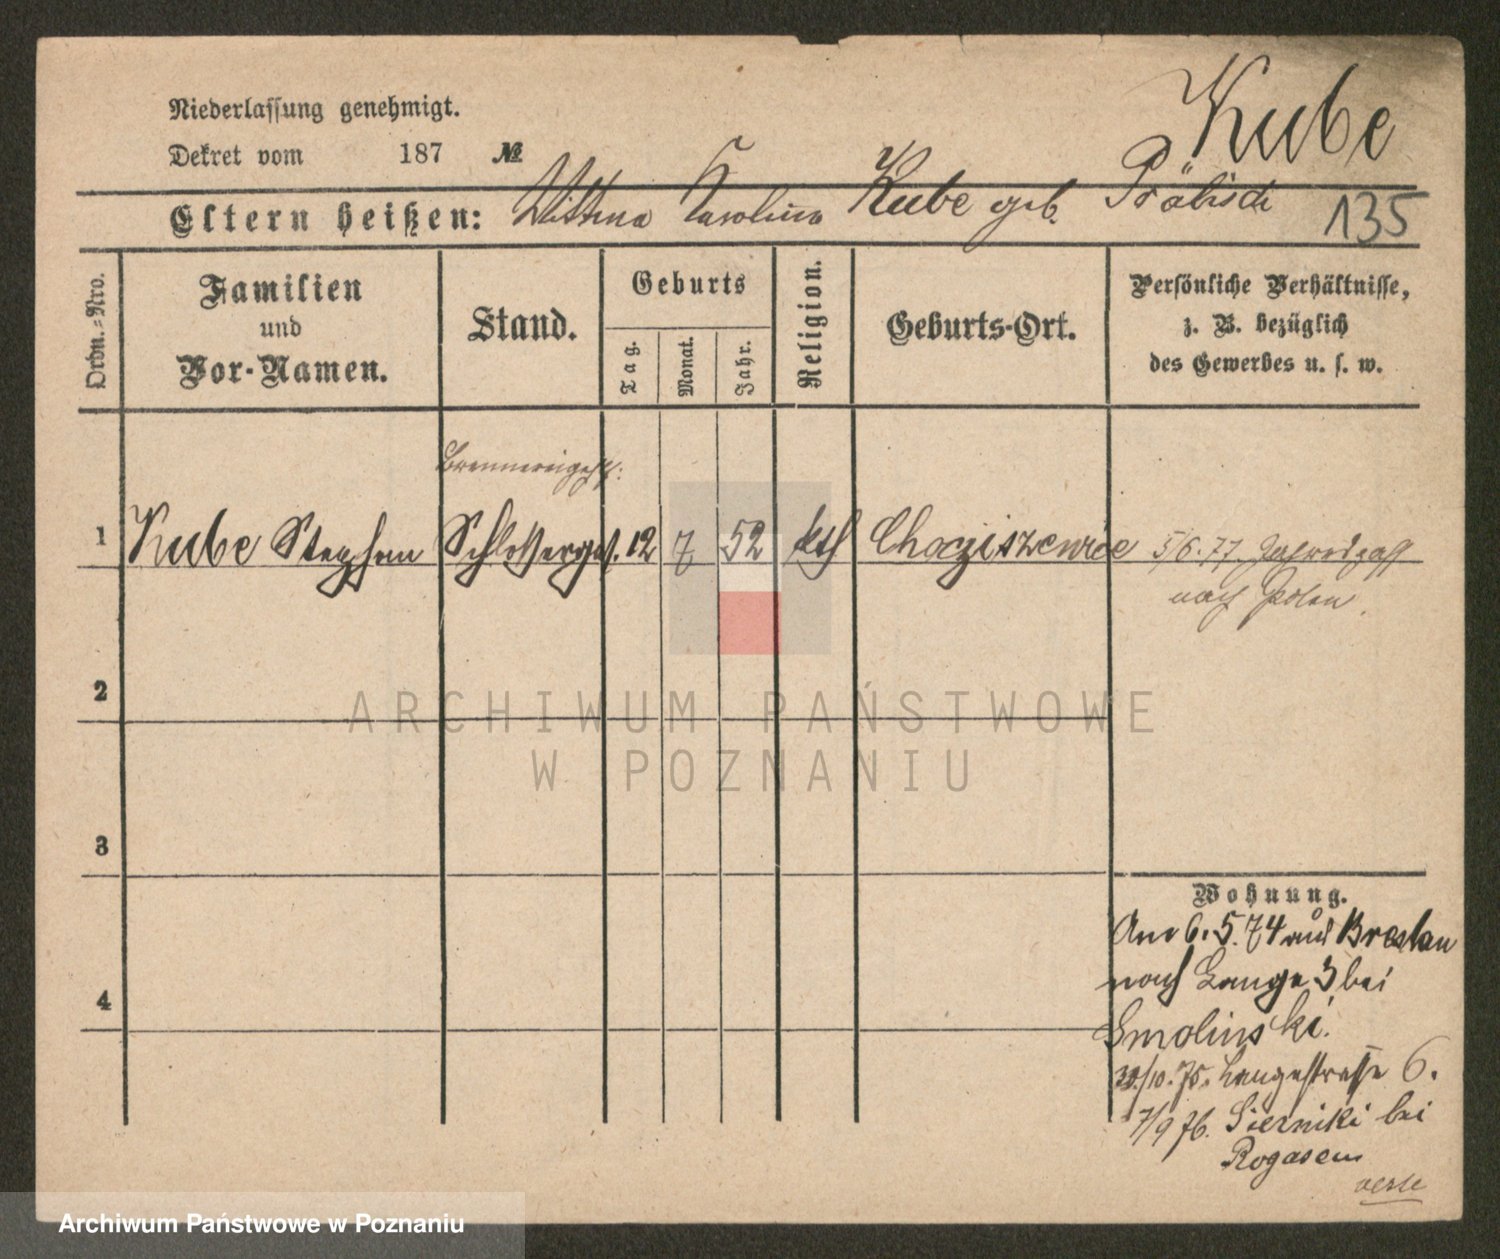 Kube
Niederlassung genehmigt.
Dekret vom 187 №
Eltern heißen: Wittwe Karoline Kube geb. Präbisch
135
Ordn.-Nro.
Familien
und
Vor-Namen.
Stand.
Geburts
Tag.
Monat.
Jahr.
Religion.
Geburts-Ort.
Persönliche Verhältnisse,
z. B. bezüglich
des Gewerbes u. s. w.
1 Kube Stephan Schlosserges. 12 7 52 kth Chocziszewice 5/6. 77
nach Polen.
2
ARCHIWUM PAŃSTWOWE
W POZNANIU
3
Wohnung.
Am 6. 5. 74 aus Breslau
nach Lange 3 bei
4
Smolinski.
/10. 75. Langestrasse 6.
7/9 76. Sierniki bei
Rogasen
verte
Archiwum Państwowe w Poznaniu